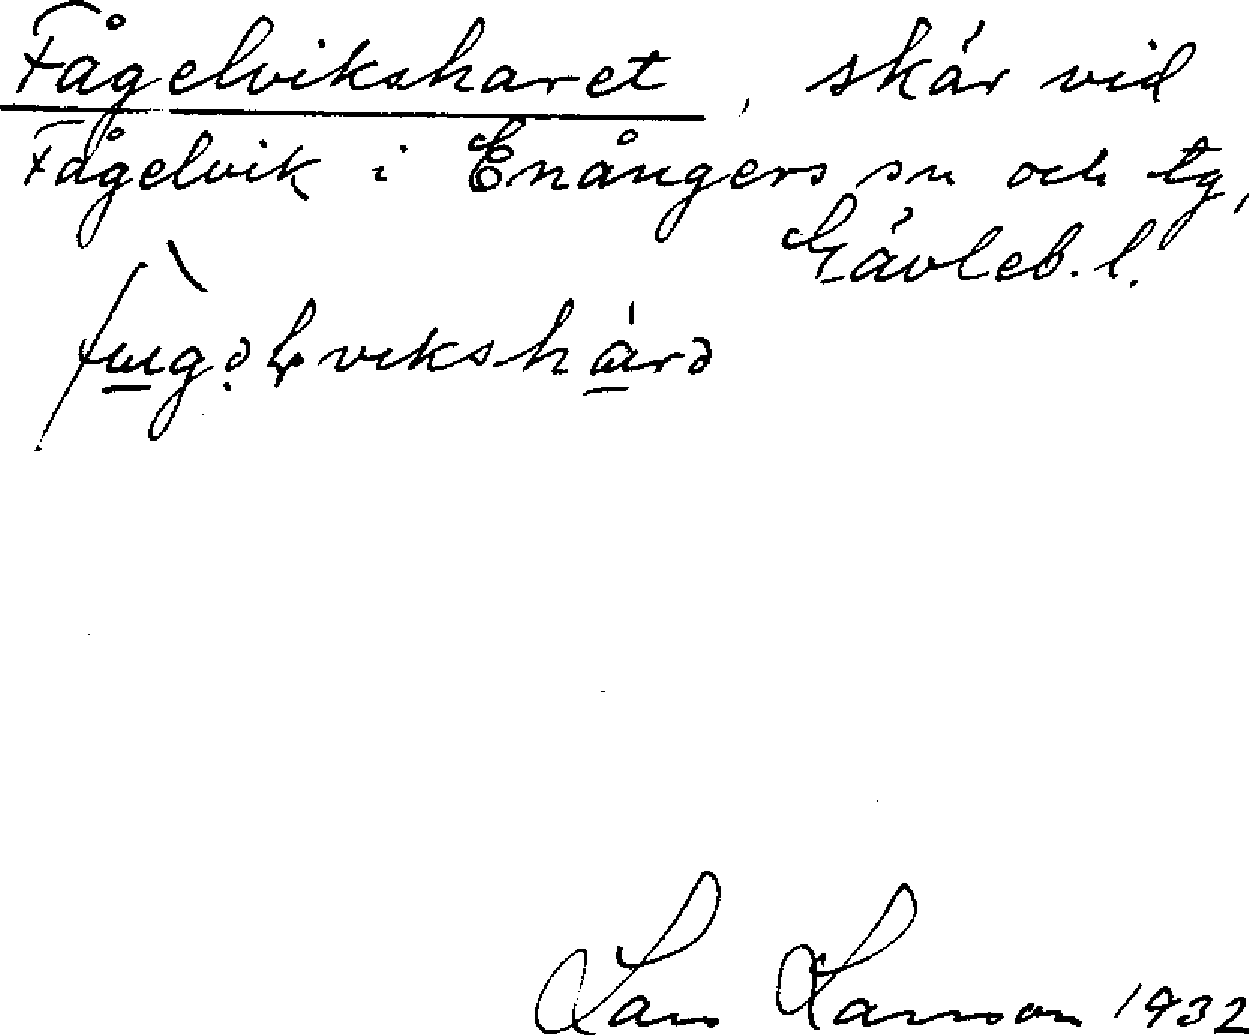 Fågelviksharet, skär vid
Fågelvik i Enångers sn och tg,
Gävleb. l.
Lars Larsson 1932